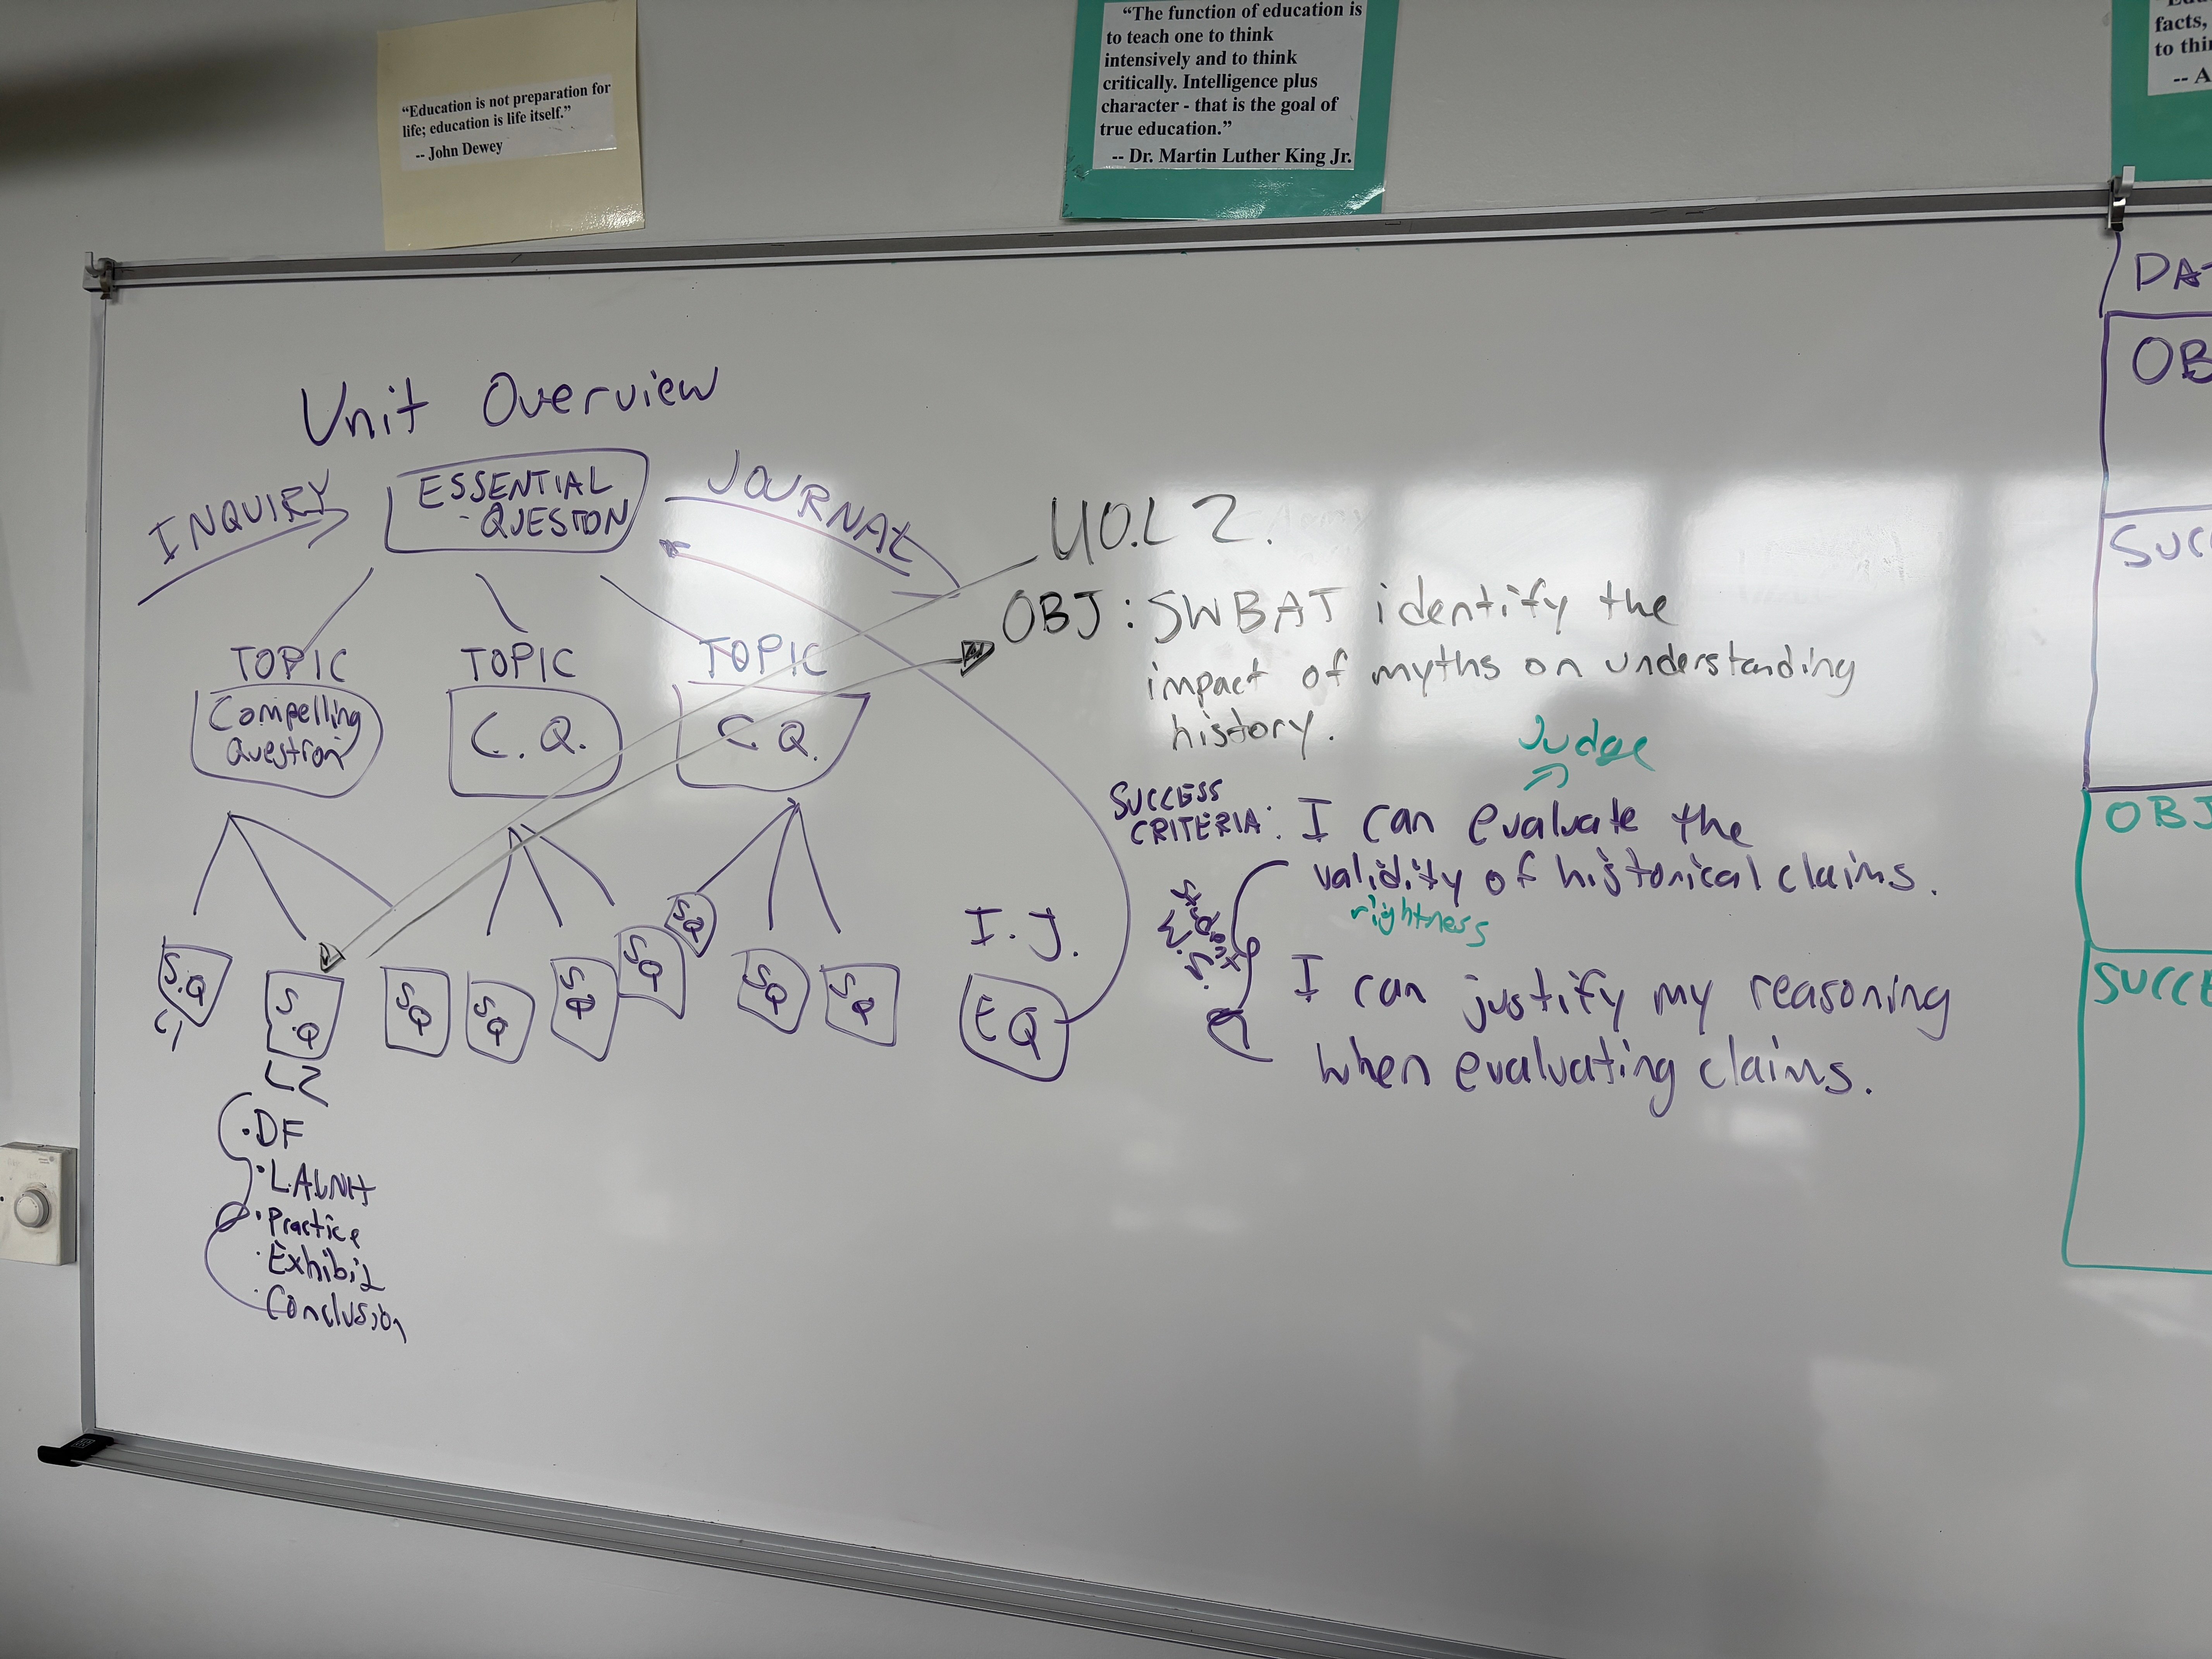 “Education is not preparation for
life; education is life itself.”
-- John Dewey
“The function of education is
to teach one to think
intensively and to think
critically. Intelligence plus
character - that is the goal of
true education.”
-- Dr. Martin Luther King Jr.
facts,
to thi
-- A
Unit Overview
INQUIRY
ESSENTIAL
QUESTION
JOURNAL
TOPIC
Compelling
Question
TOPIC
C.Q.
TOPIC
C Q.
S.Q
L1
S.Q
L2
SQ
SQ
SQ
SQ
SQ
SQ
SQ
• DF
• LAUNH
• Practice
• Exhibit
• Conclusion
I.J.
EQ
U0.L2.
OBJ: SWBAT identify the
impact of myths on understanding
history.
Judge
SUCCESS
CRITERIA: I can evaluate the
validity of historical claims.
rightness
I can justify my reasoning
when evaluating claims.
DA
OB
SUCC
OBJ
SUCCE